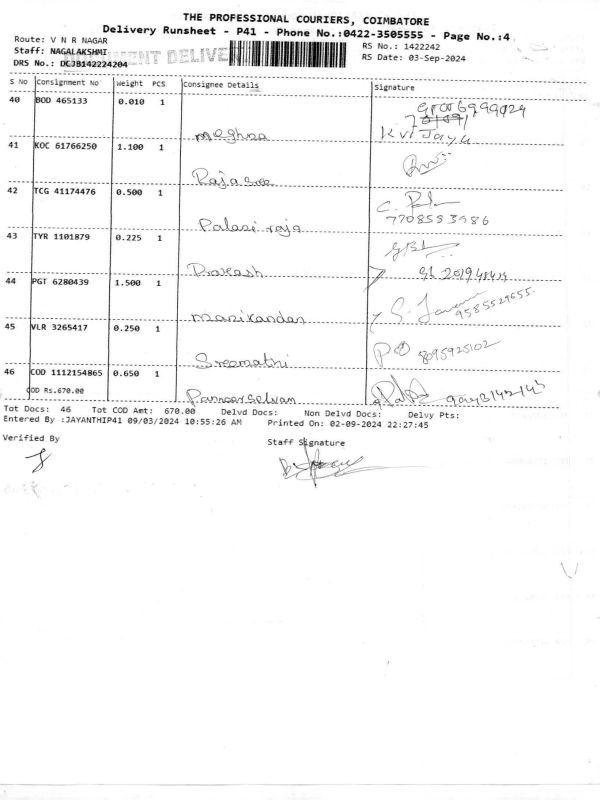 THE PROFESSIONAL COURIERS, COIMBATORE
Delivery Runsheet - P41 - Phone No.:0422-3505555 - Page No.:4
Route: V N R NAGAR
RS No.: 1422242
Staff: NAGALAKSHMI
DOCUMENT DELIVE
RS Date: 03-Sep-2024
DRS No.: DCJB142224204
S No Consignment No Weight PCS Consignee Details Signature
40 BOD 465133 0.010 1 Meghna
41 KOC 61766250 1.100 1 Rajasree
42 TCG 41174476 0.500 1 Palani raja
7708583986
43 TYR 1101879 0.225 1 Prakash
44 PGT 6280439 1.500 1 Manikandan
9585529655
45 VLR 3265417 0.250 1 Sreemathi
8095925102
46 COD 1112154865 0.650 1 Panneerselvan
COD Rs.670.00
Tot Docs: 46 Tot COD Amt: 670.00 Delvd Docs: Non Delvd Docs: Delvy Pts:
Entered By :JAYANTHIP41 09/03/2024 10:55:26 AM Printed On: 02-09-2024 22:27:45
Verified By Staff Signature